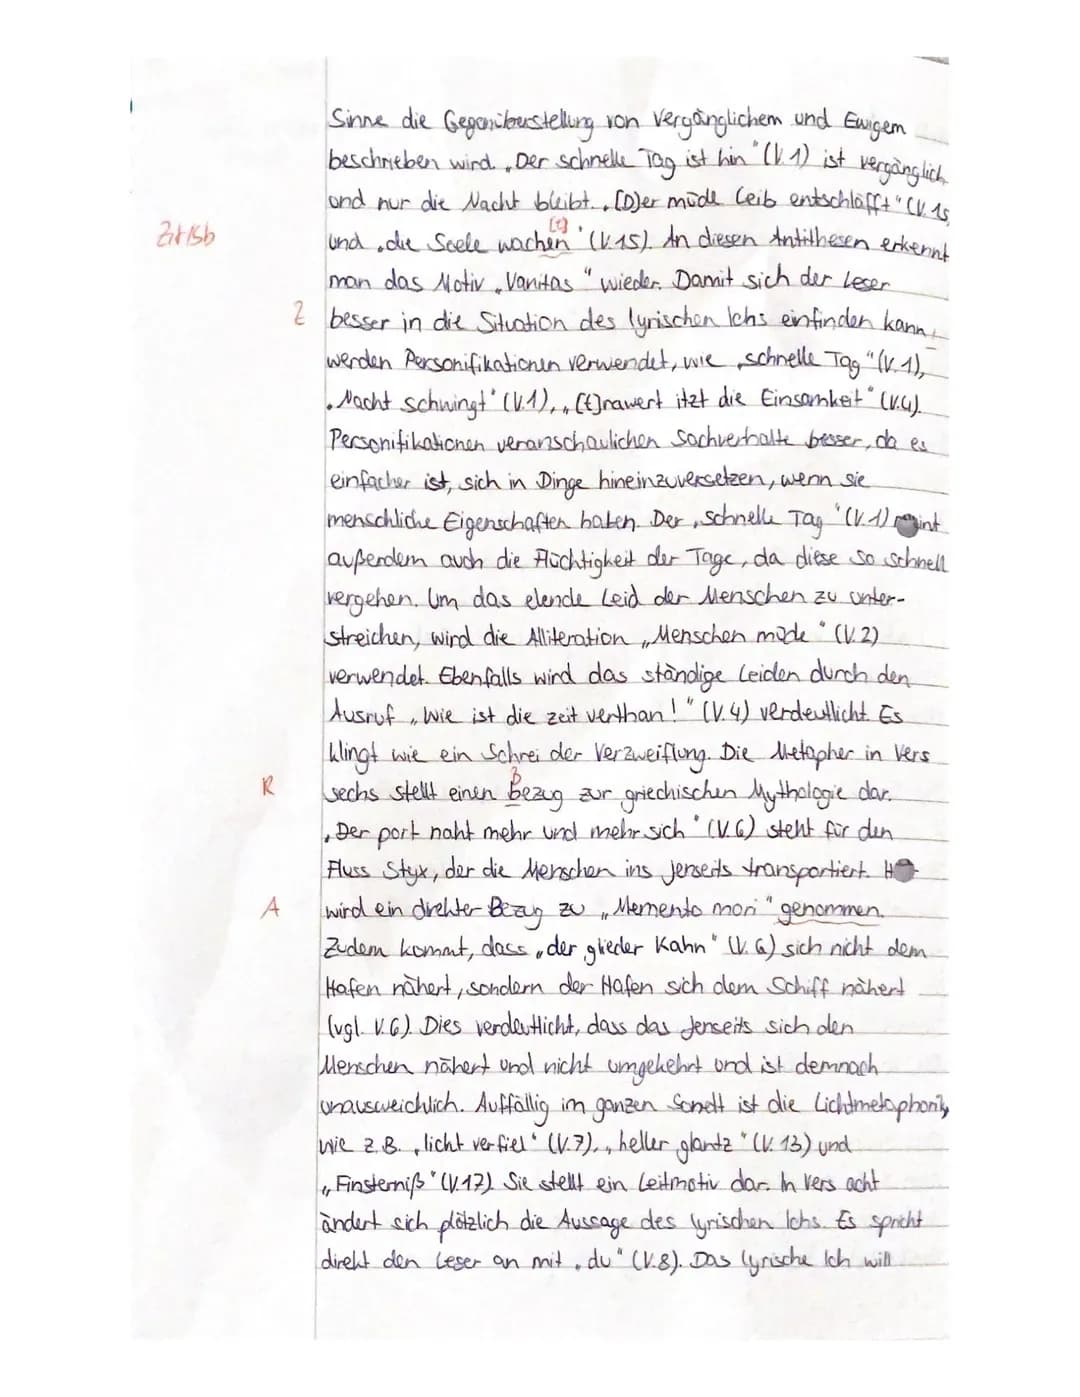 Sinne die Gegenüberstellung von Vergänglichem und Ewigem
beschrieben wird. „Der schnelle Tag ist hin" (V. 1) ist vergänglich
und nur die Nacht bleibt. „[D]er müde Leib entschläfft" (V. 15
[t]
Zit/Sb und „die Seele wachen" (V. 15). An diesen Antithesen erkennt
man das Motiv „Vanitas" wieder. Damit sich der Leser
Z besser in die Situation des lyrischen Ichs einfinden kann,
werden Personifikationen verwendet, wie „schnelle Tag" (V. 1),
„Nacht schwingt" (V. 1), „[t]rawert itzt die Einsamkeit" (V. 4).
Personifikationen veranschaulichen Sachverhalte besser, da es
einfacher ist, sich in Dinge hineinzuversetzen, wenn sie
menschliche Eigenschaften haben. Der „schnelle Tag" (V. 1) meint
außerdem auch die Flüchtigkeit der Tage, da diese so schnell
vergehen. Um das elende Leid der Menschen zu unter-
streichen, wird die Alliteration „Menschen müde" (V. 2)
verwendet. Ebenfalls wird das ständige Leiden durch den
Ausruf „Wie ist die zeit verthan!" (V. 4) verdeutlicht. Es
klingt wie ein Schrei der Verzweiflung. Die Metapher in Vers
B
R sechs stellt einen bezug zur griechischen Mythologie dar.
„Der port naht mehr und mehr sich" (V. 6) steht für den
Fluss Styx, der die Menschen ins Jenseits transportiert.
A wird ein direkter Bezug zu „Memento mori" genommen.
Zudem kommt, dass „der glieder Kahn" (V. 6) sich nicht dem
Hafen nähert, sondern der Hafen sich dem Schiff nähert
(vgl. V. 6). Dies verdeutlicht, dass das Jenseits sich den
Menschen nähert und nicht umgekehrt und ist demnach
unausweichlich. Auffällig im ganzen Sonett ist die Lichtmetaphorik,
wie z.B. „licht verfiel" (V. 7), „heller glantz" (V. 13) und
„Finsterniß" (V. 17). Sie stellt ein Leitmotiv dar. In Vers acht
ändert sich plötzlich die Aussage des lyrischen Ichs. Es spricht
direkt den Leser an mit „du" (V. 8). Das lyrische Ich will